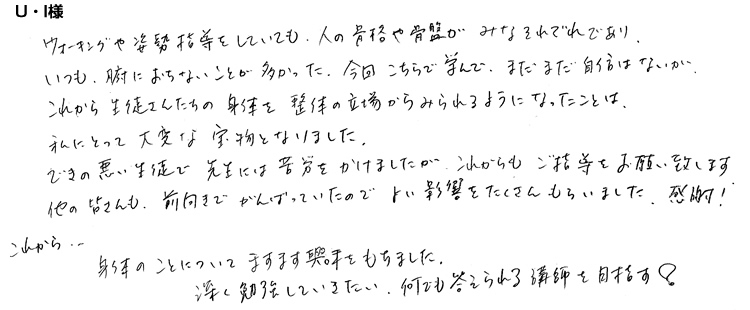 U・I様
ウォーキングや姿勢指導をしていても、人の骨格や骨盤がみなそれぞれであり、
いつも、腑におちないことが多かった。今回こちらで学んで、まだまだ自信はないが、
これから生徒さんたちの身体を整体の立場からみられるようになったことは、
私にとって大変な宝物となりました。
できの悪い生徒で先生には苦労をかけましたが、これからもご指導をお願い致します
他の皆さんも、前向きでがんばっていたのでよい影響をたくさんもらいました。感謝!
これから…
身体のことについてますます興味をもちました。
深く勉強していきたい、何でも答えられる講師を目指す